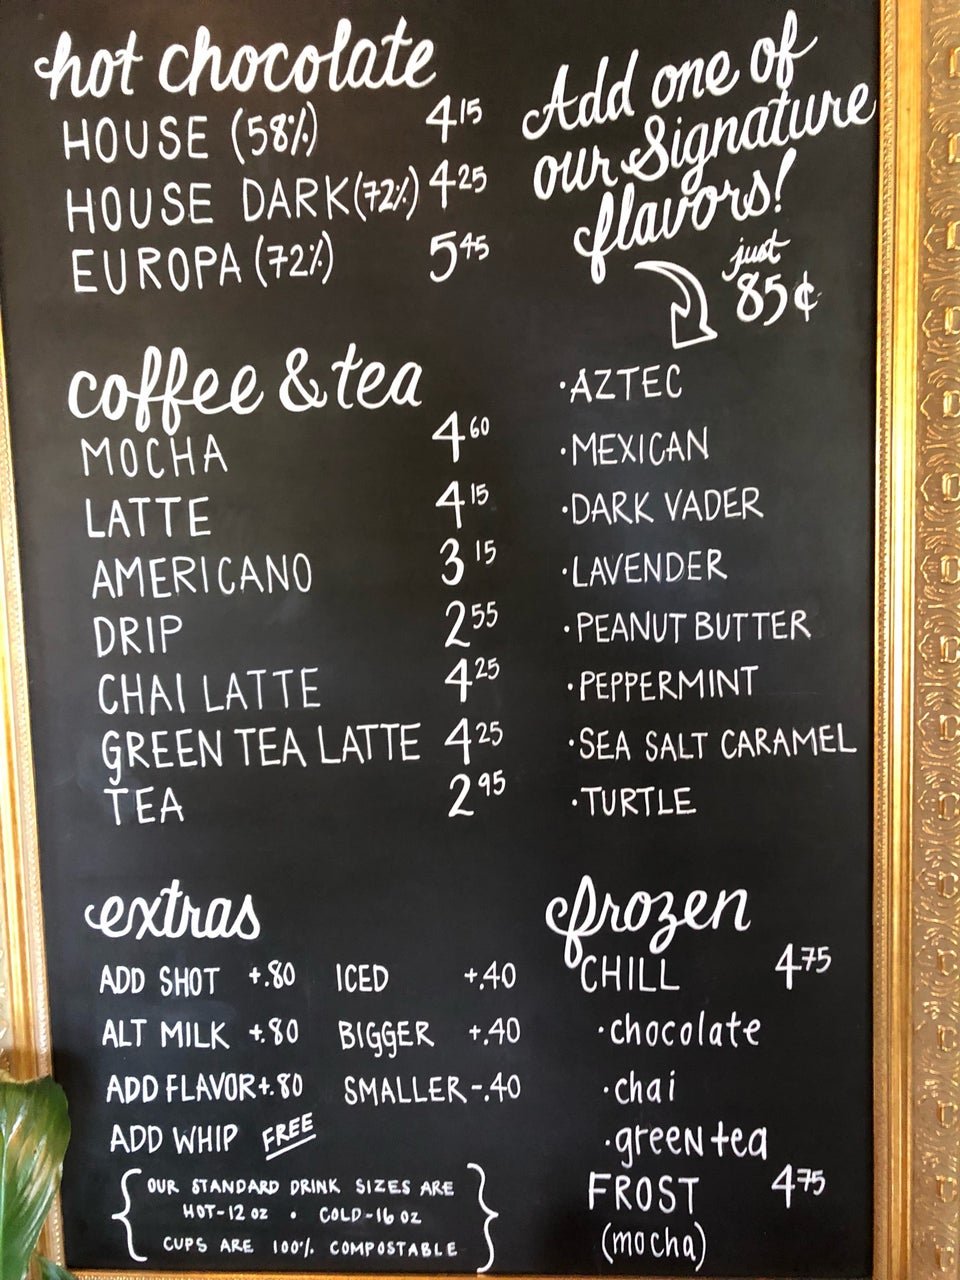 hot chocolate
HOUSE (58%) 4 15
HOUSE DARK (72%) 4 25
EUROPA (72%) 5 45
Add one of
our Signature
flavors!
just
85¢
·AZTEC
·MEXICAN
·DARK VADER
·LAVENDER
·PEANUT BUTTER
·PEPPERMINT
·SEA SALT CARAMEL
·TURTLE
coffee & tea
MOCHA 4 60
LATTE 4 15
AMERICANO 3 15
DRIP 2 55
CHAI LATTE 4 25
GREEN TEA LATTE 4 25
TEA 2 95
extras
ADD SHOT +.80 ICED +.40
ALT MILK +.80 BIGGER +.40
ADD FLAVOR +.80 SMALLER -.40
ADD WHIP FREE
OUR STANDARD DRINK SIZES ARE
HOT-12 OZ · COLD-16 OZ
CUPS ARE 100% COMPOSTABLE
frozen
CHILL 4.75
·chocolate
·chai
·green tea
FROST 4.75
(mocha)